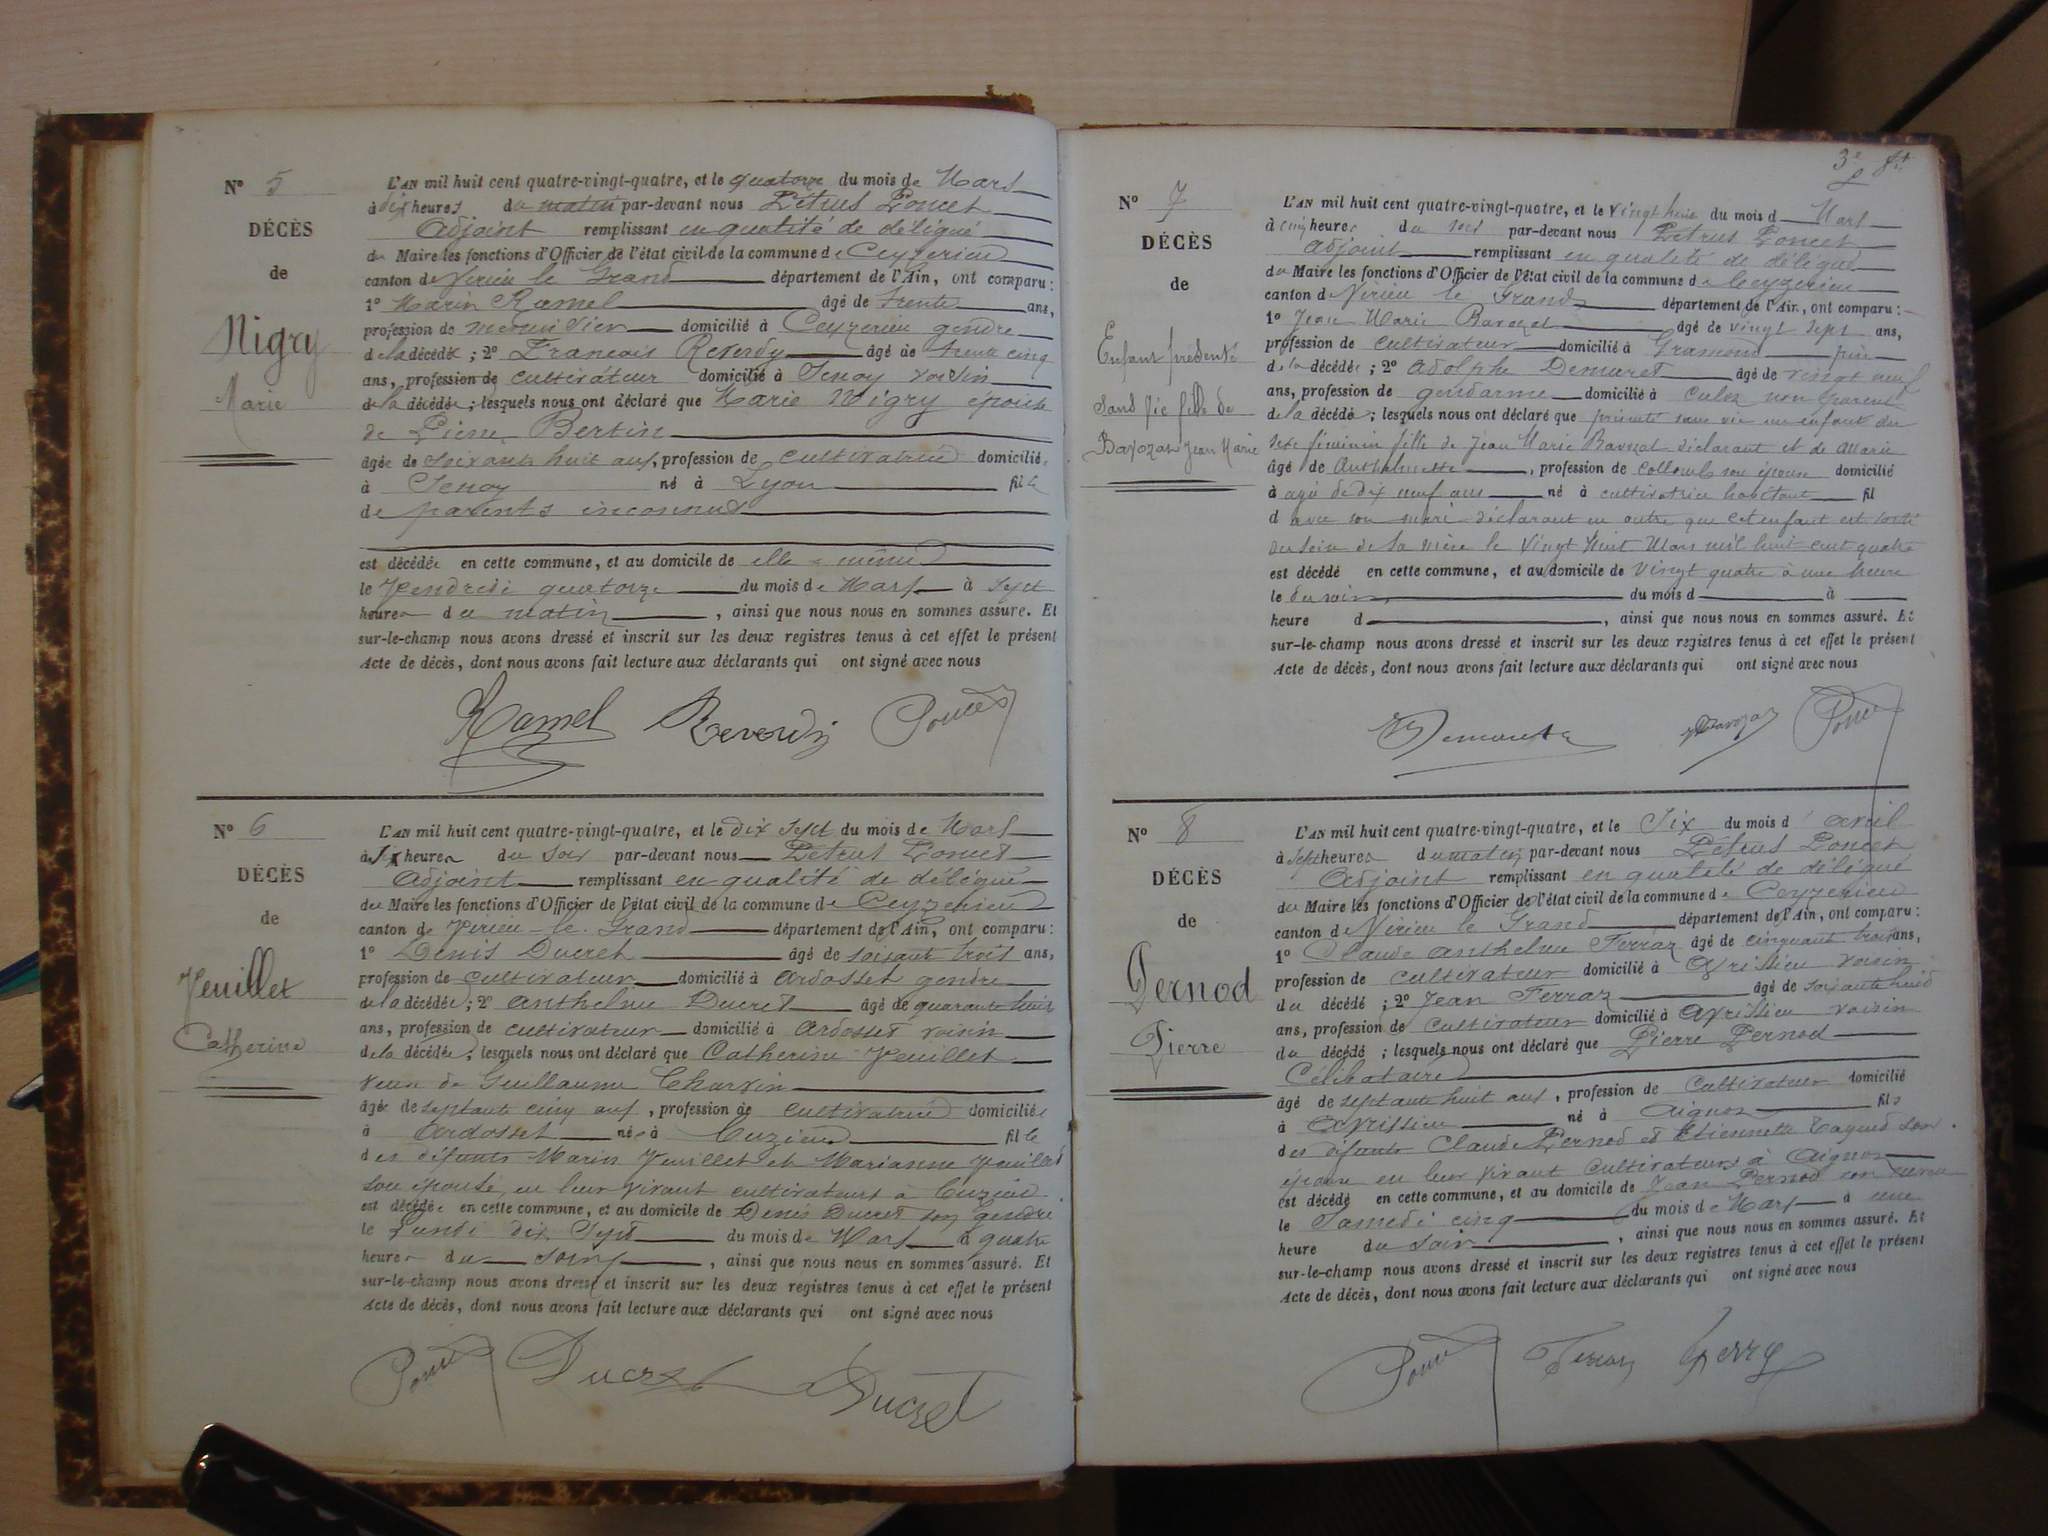 N° 5
DÉCÈS
de
Nigry
Marie
L'AN mil huit cent quatre-vingt-quatre, et le quatorze du mois de Mars
à dix heures du matin par-devant nous Pétrus Poncet
Adjoint remplissant en qualité de délégué
du Maire les fonctions d'Officier de l'état civil de la commune de Ceyzerieu
canton de Virieu le Grand département de l'Ain, ont comparu:
1° Marin Ramel âgé de trente ans,
profession de menuisier domicilié à Ceyzerieu gendre
de la décédée; 2° Francois Reverdy âgé de trente cinq
ans, profession de cultivateur domicilié à Senoy voisin
de la décédée; lesquels nous ont déclaré que Marie Nigry épouse
de Pierre Bertin
âgée de soixante huit ans, profession de cultivatrice domiciliée
à Senoy né à Lyon fille
de parents inconnus
est décédée en cette commune, et au domicile de elle-même
le Vendredi quatorze du mois de Mars à sept
heures du matin, ainsi que nous nous en sommes assuré. Et
sur-le-champ nous avons dressé et inscrit sur les deux registres tenus à cet effet le présent
Acte de décès, dont nous avons fait lecture aux déclarants qui ont signé avec nous
Ramel Reverdy Poncet
N° 6
DÉCÈS
de
Veuillet
Catherine
L'AN mil huit cent quatre-vingt-quatre, et le dix sept du mois de Mars
à six heures du soir par-devant nous Pétrus Poncet
Adjoint remplissant en qualité de délégué
du Maire les fonctions d'Officier de l'état civil de la commune de Ceyzerieu
canton de Virieu-le-Grand département de l'Ain, ont comparu:
1° Denis Ducret âgé de soixante trois ans,
profession de cultivateur domicilié à Ardosset gendre
de la décédée; 2° Anthelme Ducret âgé de quarante huit
ans, profession de cultivateur domicilié à Ardosset voisin
de la décédée; lesquels nous ont déclaré que Catherine Veuillet
veuve de Guillaume Charvin
âgée de septante cinq ans, profession de cultivatrice domiciliée
à Ardosset née à Cuzieu fille
des défunts Marin Veuillet et Marianne Veuillet
son épouse, en leur vivant cultivateurs à Cuzieu
est décédée en cette commune, et au domicile de Denis Ducret son gendre
le Lundi dix sept du mois de Mars à quatre
heures du soir, ainsi que nous nous en sommes assuré. Et
sur-le-champ nous avons dressé et inscrit sur les deux registres tenus à cet effet le présent
Acte de décès, dont nous avons fait lecture aux déclarants qui ont signé avec nous
Poncet Ducret Ducret
3e
N° 7
DÉCÈS
de
Enfant présenté
sans vie fille de
Bavozat Jean Marie
L'AN mil huit cent quatre-vingt-quatre, et le vingt huit du mois d Mars
à cinq heures du soir par-devant nous Pétrus Poncet
adjoint remplissant en qualité de délégué
du Maire les fonctions d'Officier de l'état civil de la commune de Ceyzerieu
canton de Virieu le Grand département de l'Ain, ont comparu:
1° Jean Marie Bavozat âgé de vingt sept ans,
profession de cultivateur domicilié à Gramond père
de la décédée; 2° Adolphe Demuret âgé de vingt neuf
ans, profession de gendarme domicilié à Culoz non parent
de la décédé; lesquels nous ont déclaré que présenté sans vie un enfant du
sexe féminin fille de Jean Marie Bavozat déclarant et de Marie
âgé de Anthelmette, profession de Collomb son épouse domicilié
à agée de dix neuf ans né à cultivatrice habitant fil
d avec son mari déclarant en outre que cet enfant est sorti
du sein de sa mère le vingt huit Mars mil huit cent quatre
est décédé en cette commune, et au domicile de vingt quatre à une heure
le du soir du mois d à
heure d , ainsi que nous nous en sommes assuré. Et
sur-le-champ nous avons dressé et inscrit sur les deux registres tenus à cet effet le présent
Acte de décès, dont nous avons fait lecture aux déclarants qui ont signé avec nous
Bavozat Poncet
N° 8
DÉCÈS
de
Pernod
Pierre
L'AN mil huit cent quatre-vingt-quatre, et le Six du mois d'avril
à sept heures du matin par-devant nous Pétrus Poncet
Adjoint remplissant en qualité de délégué
du Maire les fonctions d'Officier de l'état civil de la commune de Ceyzerieu
canton de Virieu le Grand département de l'Ain, ont comparu:
1° Claude Anthelme Ferraz âgé de cinquante trois ans,
profession de cultivateur domicilié à Avrissieu voisin
du décédé; 2° Jean Ferraz âgé de soixante huit
ans, profession de cultivateur domicilié à Avrissieu voisin
du décédé; lesquels nous ont déclaré que Pierre Pernod
Célibataire
âgé de septante huit ans, profession de Cultivateur domicilié
à Avrissieu né à Aignoz fils
des défunts Claude Pernod et Etiennette son
épouse en leur vivant cultivateurs à Aignoz
est décédé en cette commune, et au domicile de Jean Pernod son neveu
le Samedi cinq du mois de Mars à une
heure du soir, ainsi que nous nous en sommes assuré. Et
sur-le-champ nous avons dressé et inscrit sur les deux registres tenus à cet effet le présent
Acte de décès, dont nous avons fait lecture aux déclarants qui ont signé avec nous
Poncet